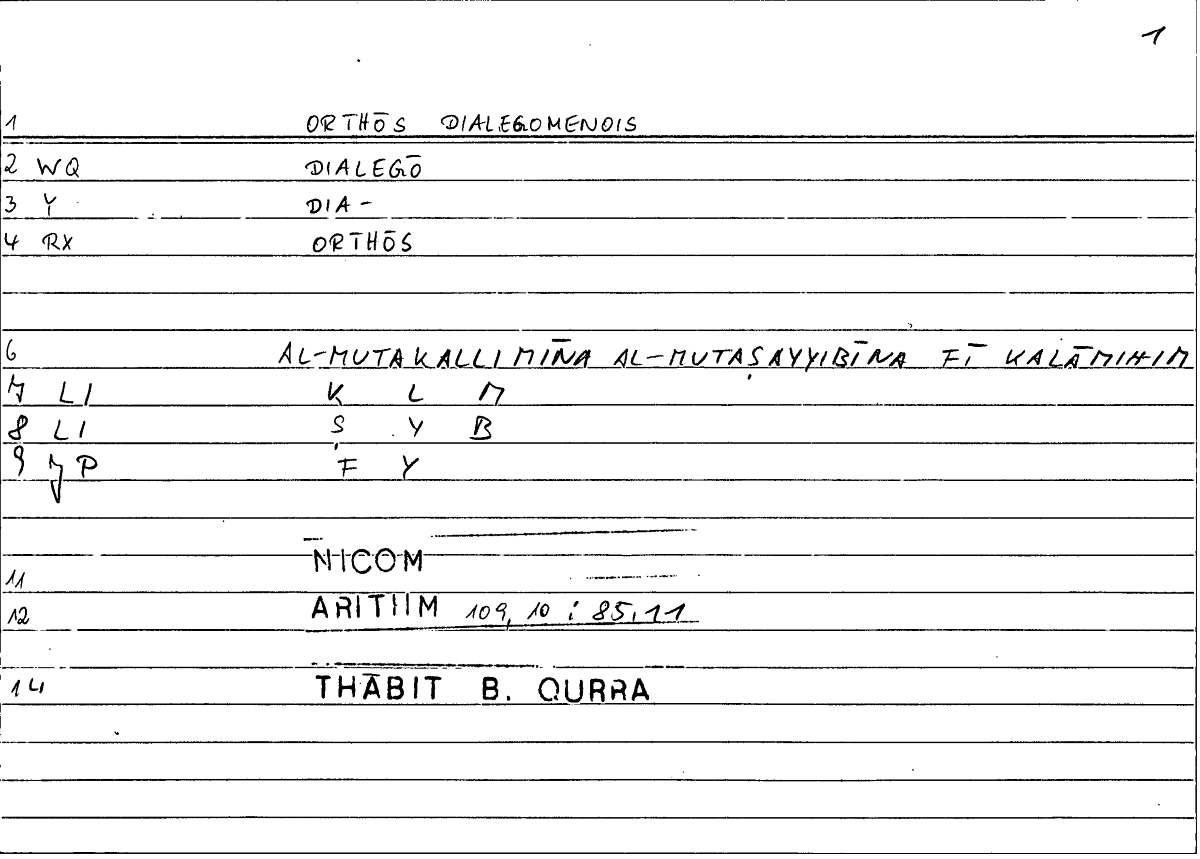 1
1 ORTHŌS DIALEGOMENOIS
2 WQ DIALEGŌ
3 Y DIA-
4 RX ORTHŌS
6 AL-MUTAKALLIMĪNA AL-MUTAṢAYYIBĪNA FĪ KALĀMIHIM
7 LI K L M
8 LI Ṣ Y B
9 JP F Y
11 NICOM
12 ARITHM 109, 10 ; 85,11
14 THĀBIT B. QURRA